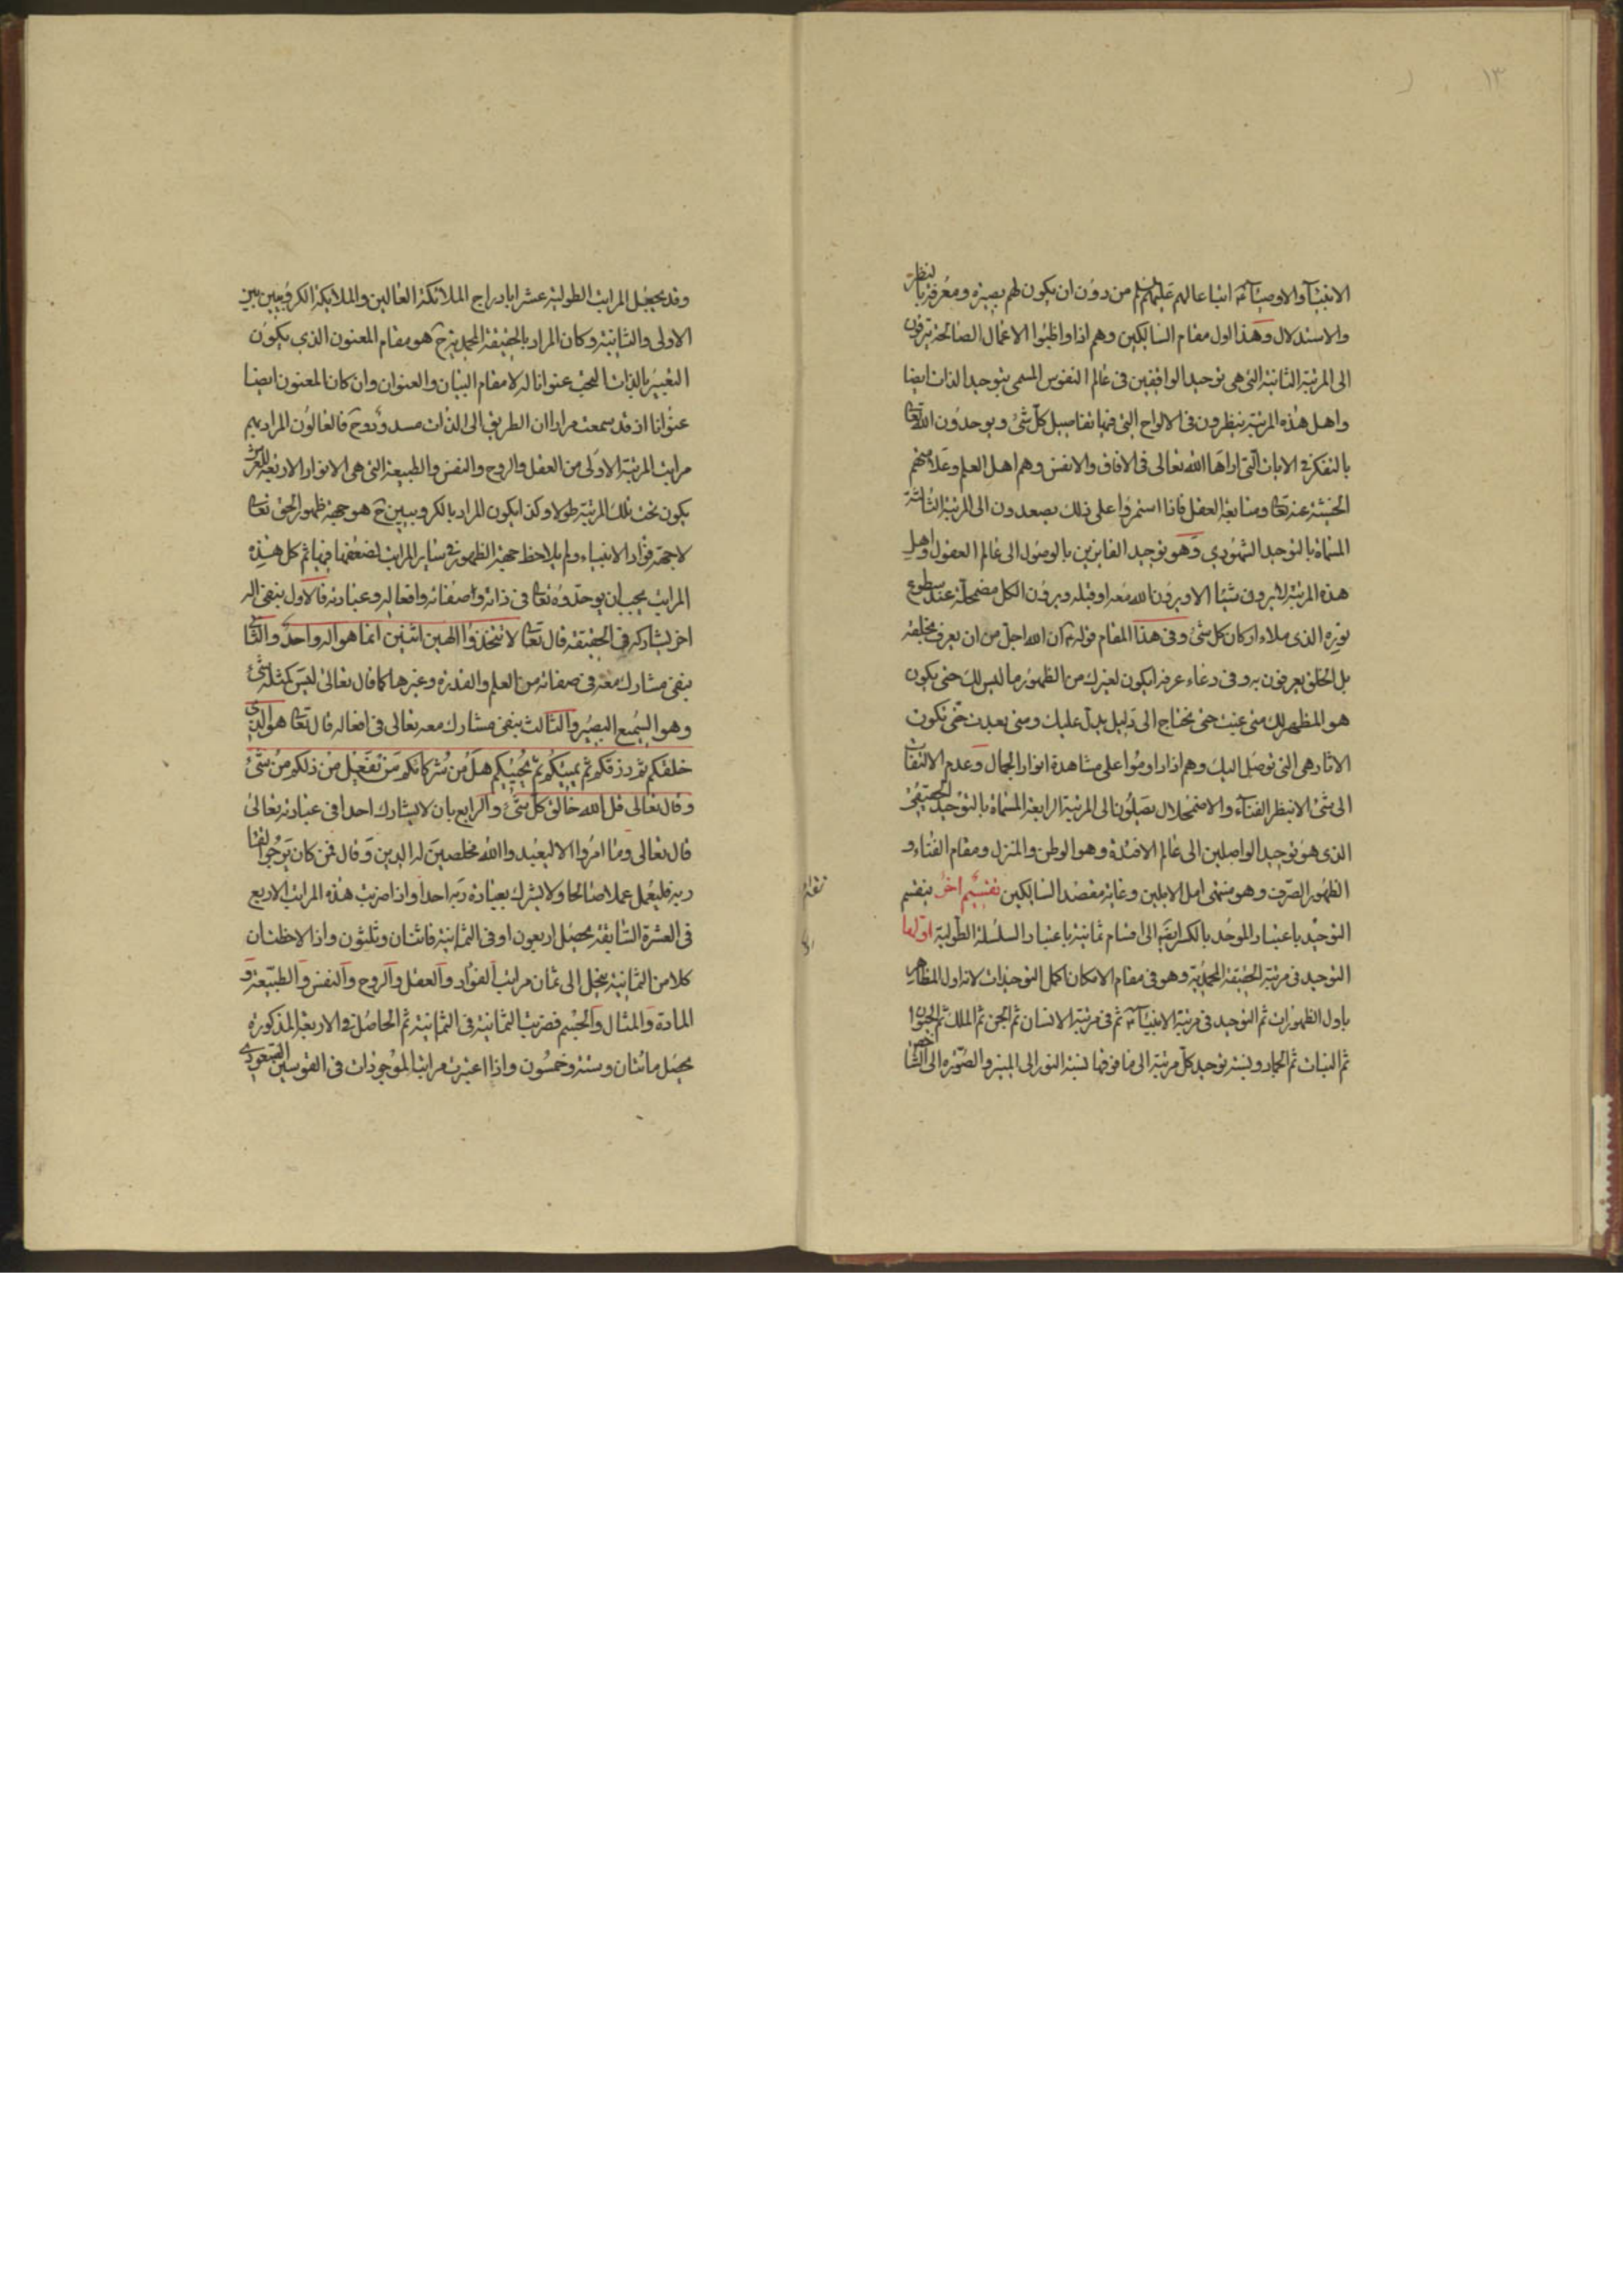 ١٣
الانبیآء والاوصیآء اتباعا لهم علیهم من دون ان یکون لهم بصیرة ومعرفة بالنظر
والاستدلال وهذا اول مقام السالکین وهم اذا واظبوا الاعمال الصالحة یترقون
الی المرتبة الثانیة التی هی توحید الواقفین فی عالم النفوس المسمی بتوحید الذات ایضا
واهل هذه المرتبة ینظرون فی الالواح التی فیها تفاصیل کل شئ ویوحدون الله تعا
بالتفکر فی الایات التی اراها الله تعالی فی الافاق والانفس وهم اهل العلم وعلامتهم
الخشیة عنه تعا ومتابعة العقل فاذا استمروا علی ذلك یصعدون الی المرتبة الثالثة
المسماة بالتوحید الشهودی وهو توحید الفایزین بالوصول الی عالم العقول واهل
هذه المرتبة لایرون شیئا الا ویرون الله معه او قبله ویرون الکل مضمحلة عند سطوع
نوره الذی ملاء ارکان کل شئ وفی هذا المقام قوله ان الله اجل من ان یعرف بخلقه
بل الخلق یعرفون به وفی دعاء عرفة ایکون لغیرك من الظهور ما لیس لك حتی یکون
هو المظهر لك متی غبت حتی تحتاج الی دلیل یدل علیك ومتی بعدت حتی تکون
الاثار هی التی توصل الیك وهم اذا داوموا علی مشاهدة انوار الجمال وعدم الالتفات
الی شئ الا بنظر الفنآء والاضمحلال یصلون الی المرتبة الرابعة المسماة بالتوحید الحقیقی
الذی هو توحید الواصلین الی عالم الافئدة وهو الوطن والمنزل ومقام الفناء و
الظهور الصرف وهو منتهی امل الاملین وغایة مقصد السالکین تقسیم اخر ینقسم
التوحید باعتبار الموحد بالکسر ایضا الی اقسام ثمانیة باعتبار السلسلة الطولیة اولها
التوحید فی مرتبة الحقیقة المحمدیة وهو فی مقام الامکان اکمل التوحیدات لانه اول المظاهر
باول الظهورات ثم التوحید فی مرتبة الانبیآء ثم فی مرتبة الانسان ثم الجن ثم الملك ثم الحیوان
ثم النبات ثم الجماد ونسبة توحید کل مرتبة الی ما فوقها نسبة النور الی المنیر والصورة الی الشاخص
وقد یجعل المراتب الطولیة عشرا بادراج الملائکة العالین والملایکة الکروبیین بین
الاولی والثانیة وکان المراد بالحقیقة المحمدیة ح هو مقام المعنون الذی یکون
التعبیر بالذات البحت عنوانا له لا مقام البیان والعنوان وان کان المعنون ایضا
عنوانا اذ قد سمعت مرارا ان الطریق الی الذات مسدود وح فالعالون المراد بهم
مراتب المرتبة الاولی من العقل والروح والنفس والطبیعة التی هی الانوار الاربعة للعرش
یکون تحت تلك المرتبة طولا وکذا یکون المراد بالکروبیین ح هو جهة ظهور الحق تعا
لا جهة فؤاد الانبیاء ولم یلاحظ جهة الظهور فی سایر المراتب لضعفها فیها ثم کل هذه
المراتب یجب ان یوحدوه تعا فی ذاته وصفاته وافعاله وعبادته فالاول بنفی اله
اخر یشارکه فی الحقیقة قال تعا لا تتخذوا الهین اثنین انما هو اله واحد والثانی
بنفی مشارك معه فی صفاته من العلم والقدرة وغیرها کما قال تعالی لیس کمثله شئ
وهو السمیع البصیر والثالث بنفی مشارك معه تعالی فی افعاله قال تعا هو الذی
خلقکم ثم رزقکم ثم یمیتکم ثم یحییکم هل من شرکائکم من یفعل من ذلکم من شئ
وقال تعالی قل الله خالق کل شئ والرابع بان لا یشارك احدا فی عبادته تعالی
قال تعالی وما امروا الا لیعبدوا الله مخلصین له الدین وقال فمن کان یرجوا لقاء
ربه فلیعمل عملا صالحا ولا یشرك بعبادة ربه احدا واذا ضربت هذه المراتب الاربع
فی العشرة السابقة یحصل اربعون او فی الثمانیة فاثنان وثلثون واذا لاحظت ان
کلا من الثمانیة ینحل الی ثمان مراتب الفؤاد والعقل والروح والنفس والطبیعة و
المادة والمثال والجسم فضربت الثمانیة فی الثمانیة ثم الحاصل فی الاربعة المذکورة
یحصل مائتان وستة وخمسون واذا اعتبرت مراتب الموجودات فی القوسین الصعودی